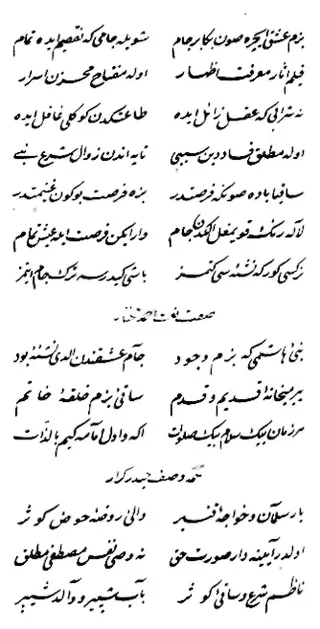 بزم عشق ایچره صون کا بر جام شویله جامی که نقصیم ایده تام
قیلم آثار معرفت اظهار اوله مفتاح مخزن اسرار
نه شرابی که عقل زائل ایده طاعتکدن کوکلی غافل ایده
اوله مطلق فساد دین سببی تاپه اندن زوال شرع نبی
ساقیا باده صونکه فرصتدر بزه فرصت بوکون غنیمتدر
لاله رنک قویمغل الکدن جام وار ایکن فرصت ایله عیش تمام
نرکسی کورکه نشئه سی کتمز باشی کیدرسه ترک جام ایتمز
صفت نعت احمد مختار
نبئ هاشمی که بزم وجود جام عشقندن الدی نشئهٔ بود
پیر میخانهٔ قدیم و قدم ساقئ بزم حلقهٔ خاتم
هر زمان بیک سلام بیک صلوات اکه و اول امامه کیم بالذات
وصف حیدر کرار
یار سلمان و خواجهٔ قنبر والی روضهٔ حوض کوثر
اولدر آیینه دار صورت حق نه وصی نفس مصطفی مطلق
ناظم شرع و ساقئ کوثر باب شبیر و والد شبر